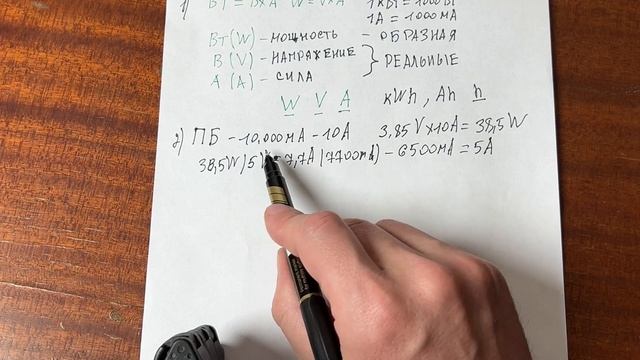 1) Вт = В×А W = V×A 1 кВт = 1000 Вт
1А = 1000 мА
Вт (W) - мощность - образная
В (V) - напряжение } реальные
А (А) - сила
W V A kWh, Ah h
2) ПБ - 10,000 мА - 10А 3,85V×10A = 38,5W
38,5W / 5V = 7,7А (7700мА) - 6500мА = 5А